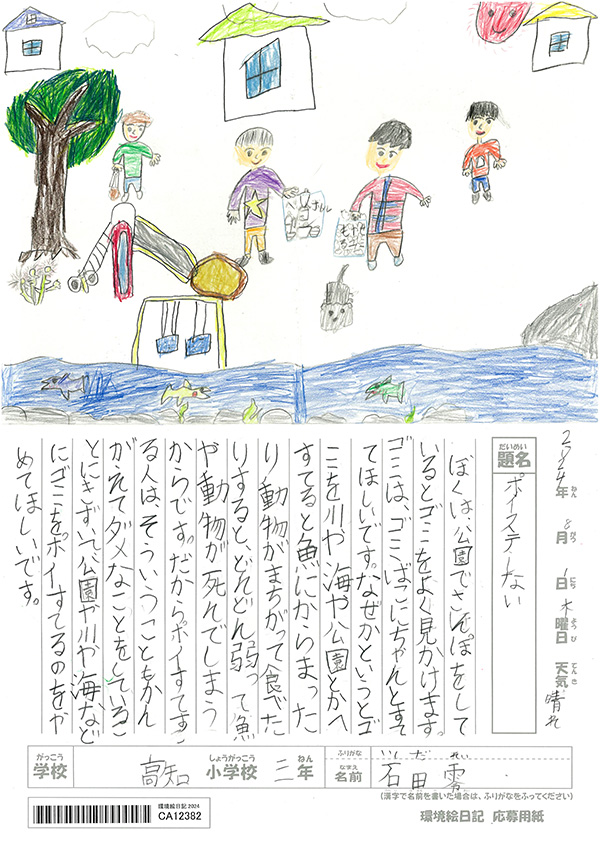 2024年 8月 1日 木曜日 天気 晴れ
ねん がつ にち ようび てんき
だいめい
題名 ポイステしない
ぼくは公園でさんぽをして
いるとゴミをよく見かけます。
ゴミは、ゴミばこにちゃんとすて
てほしいです。なぜかというとゴ
ミを川や海や公園とかへ
すてると魚にからまった
り動物がまちがって食べた
りすると、どんどん弱って魚
や動物が死んでしまう
からです。だからポイすてす
る人は、そういうこともかん
がえてダメなことをしているこ
とにきずいて公園や川や海など
にゴミをポイすてるのをや
めてほしいです。
がっこう しょうがっこう ねん ふりがな いし だ れい
学校 高知 小学校 三年 なまえ 名前 石田零
(漢字で名前を書いた場合は、ふりがなをふってください)
環境絵日記 2024
CA12382
環境絵日記 応募用紙